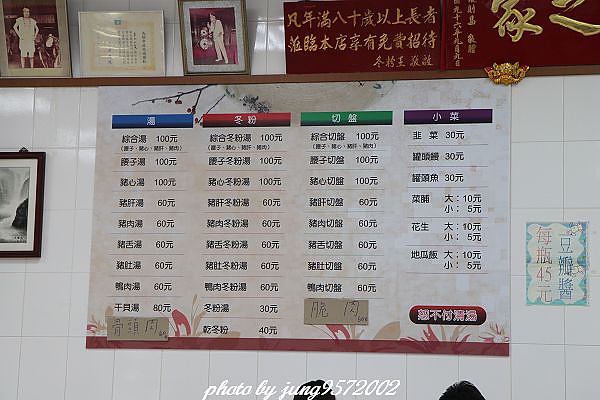 凡年滿八十歲以上長者
蒞臨本店享有免費招待
冬粉王 敬啟
湯
綜合湯 100元
(腰子、豬心、豬肝、豬肉)
腰子湯 100元
豬心湯 100元
豬肝湯 60元
豬肉湯 60元
豬舌湯 60元
豬肚湯 60元
鴨肉湯 60元
干貝湯 80元
骨頭肉
冬粉
綜合冬粉湯 100元
(腰子、豬心、豬肝、豬肉)
腰子冬粉湯 100元
豬心冬粉湯 100元
豬肝冬粉湯 60元
豬肉冬粉湯 60元
豬舌冬粉湯 60元
豬肚冬粉湯 60元
鴨肉冬粉湯 60元
冬粉湯 30元
乾冬粉 40元
切盤
綜合切盤 100元
(腰子、豬心、豬肝、豬肉)
腰子切盤 100元
豬心切盤 100元
豬肝切盤 60元
豬肉切盤 60元
豬舌切盤 60元
豬肚切盤 60元
鴨肉切盤 60元
脆肉
小菜
韭菜 30元
罐頭鰻 30元
罐頭魚 30元
菜脯 大：10元
小： 5元
花生 大：10元
小： 5元
地瓜飯 大：10元
小： 5元
恕不付清湯
豆瓣醬
每瓶45元
photo by jung9572002